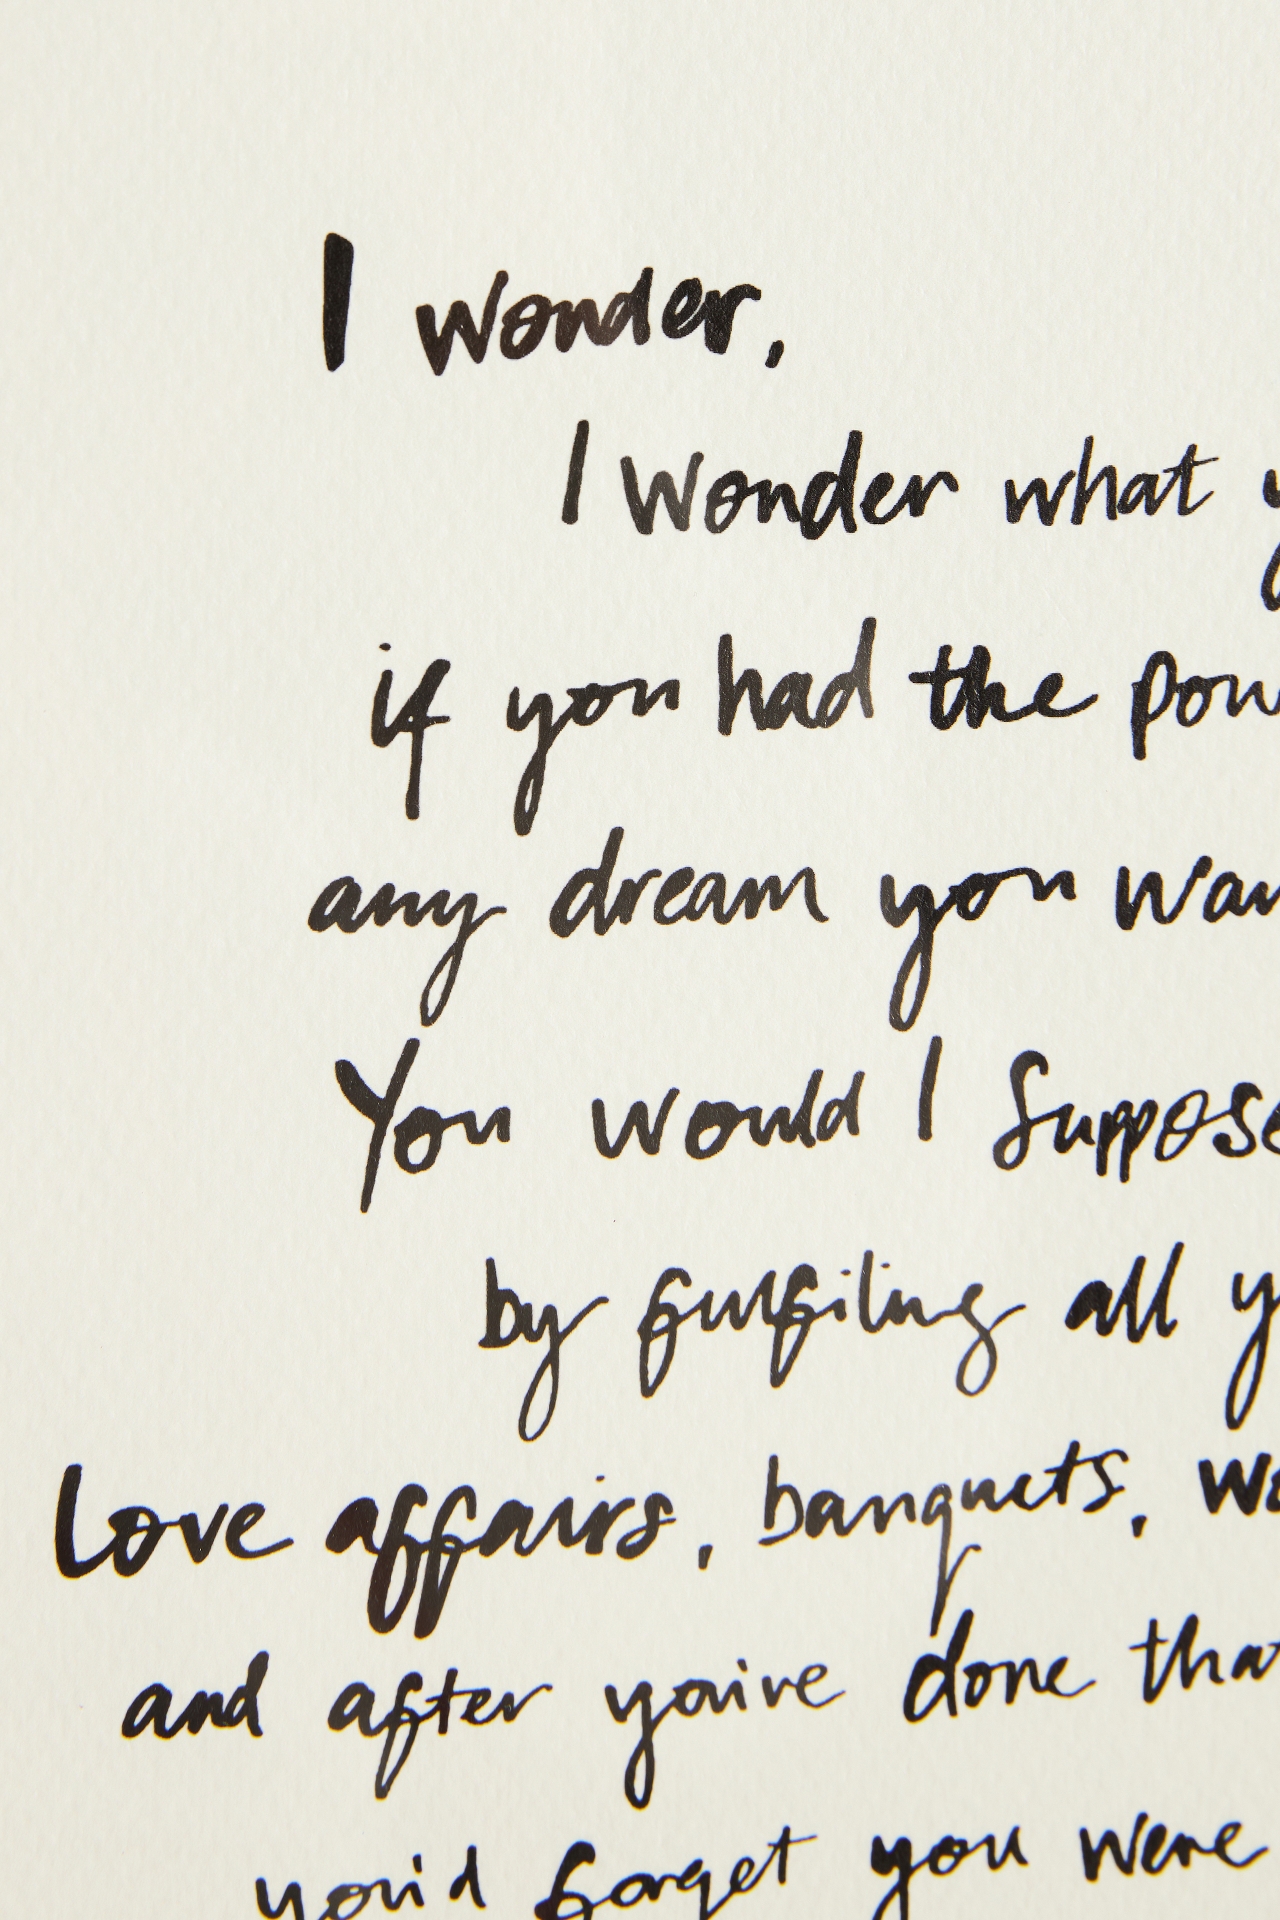 I wonder,
I wonder what y
if you had the pow
any dream you wan
You would I suppose
by fulfiling all y
Love affairs, banquets, wo
and after you've done that
you'd forget you were